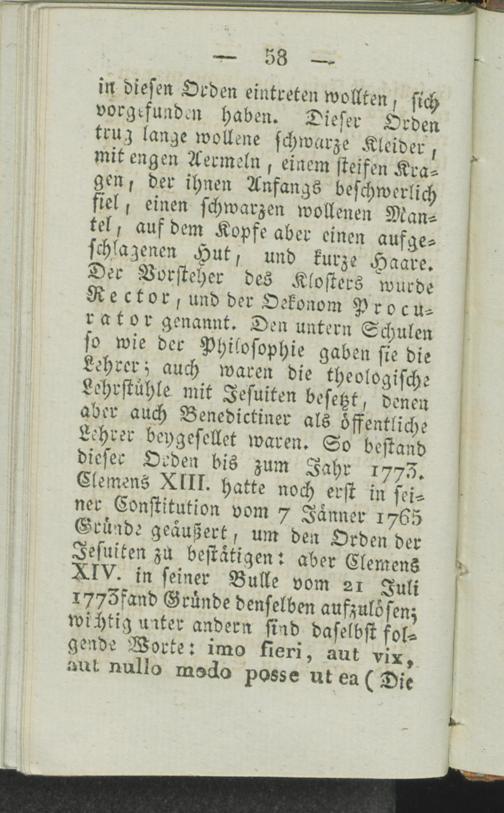 — 58 —
in diesen Orden eintreten wollten, sich
vorgefunden haben. Dieser Orden
trug lange wollene schwarze Kleider,
mit engen Aermeln, einem steifen Kra-
gen, der ihnen Anfangs beschwerlich
fiel, einen schwarzen wollenen Man-
tel, auf dem Kopfe aber einen aufge-
schlagenen Hut, und kurze Haare.
Der Vorsteher des Klosters wurde
Rector, und der Oekonom Procu-
rator genannt. Den untern Schulen
so wie der Philosophie gaben sie die
Lehrer; auch waren die theologische
Lehrstühle mit Jesuiten besetzt, denen
aber auch Benedictiner als öffentliche
Lehrer beygesellet waren. So bestand
dieser Orden bis zum Jahr 1773.
Clemens XIII. hatte noch erst in sei-
ner Constitution vom 7 Jänner 1765
Gründe geäußert, um den Orden der
Jesuiten zu bestätigen: aber Clemens
XIV. in seiner Bulle vom 21 Juli
1773 fand Gründe denselben aufzulösen;
wichtig unter andern sind daselbst fol-
gende Worte: imo fieri, aut vix,
aut nullo modo posse ut ea (Die